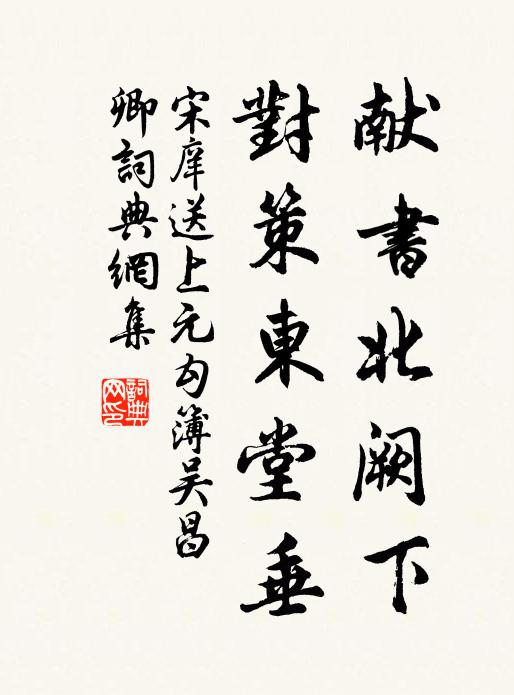 献書北阙下
對策東堂垂
宋庠送上元勾簿吴昌
卿詞典網集
詞典
网印